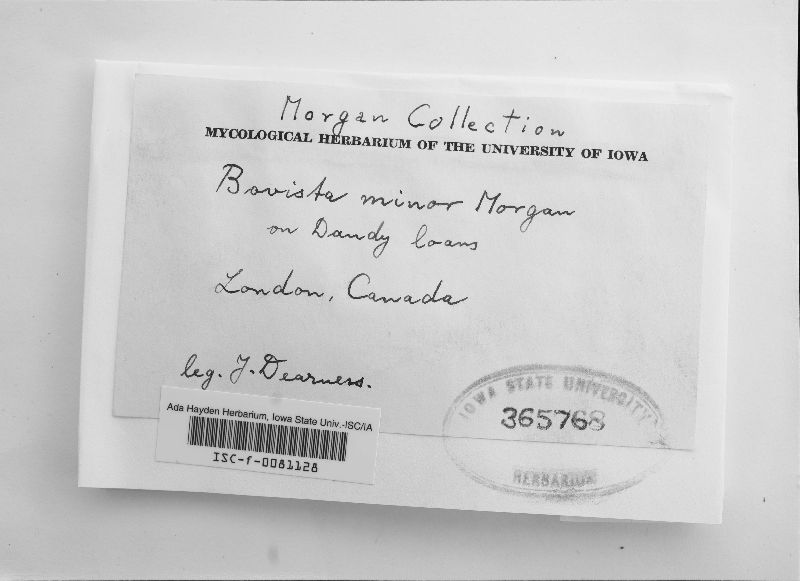 Morgan Collection
MYCOLOGICAL HERBARIUM OF THE UNIVERSITY OF IOWA
Bovista minor Morgan
on Dandy loans
London, Canada
leg. J. Dearness.
Ada Hayden Herbarium, Iowa State Univ.-ISC/IA
ISC-f-0081128
IOWA STATE UNIVERSITY
365768
HERBARIUM